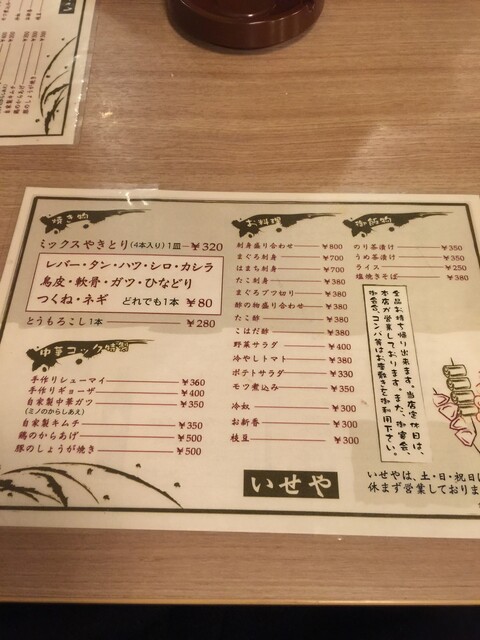 焼き物
ミックスやきとり(4本入り)1皿 ¥320
レバー・タン・ハツ・シロ・カシラ
鳥皮・軟骨・ガツ・ひなどり
つくね・ネギ どれでも1本 ¥80
とうもろこし1本 ¥280
中華コック特製
手作りシューマイ ¥360
手作りギョーザ ¥400
自家製中華ガツ ¥350
(ミノのからしあえ)
自家製キムチ ¥350
鶏のからあげ ¥500
豚のしょうが焼き ¥500
お料理
刺身盛り合わせ ¥800
まぐろ刺身 ¥700
はまち刺身 ¥700
たこ刺身 ¥380
まぐろブツ切り ¥380
酢の物盛り合わせ ¥380
たこ酢 ¥380
こはだ酢 ¥380
野菜サラダ ¥400
冷やしトマト ¥380
ポテトサラダ ¥330
モツ煮込み ¥350
冷奴 ¥300
お新香 ¥300
枝豆 ¥300
御飯物
のり茶漬け ¥350
うめ茶漬け ¥350
ライス ¥250
塩焼きそば ¥380
全品お持ち帰り出来ます。当店定休日は、
本店が営業しております。また、御宴会、
御会合、コンパ等はお座敷を御利用下さい。
いせや
いせやは、土・日・祝日
休まず営業しておりま